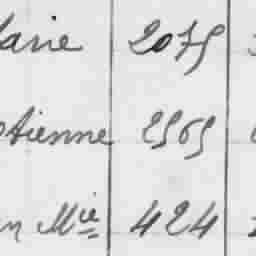 larie 2075
etienne 2565
n Mie 424